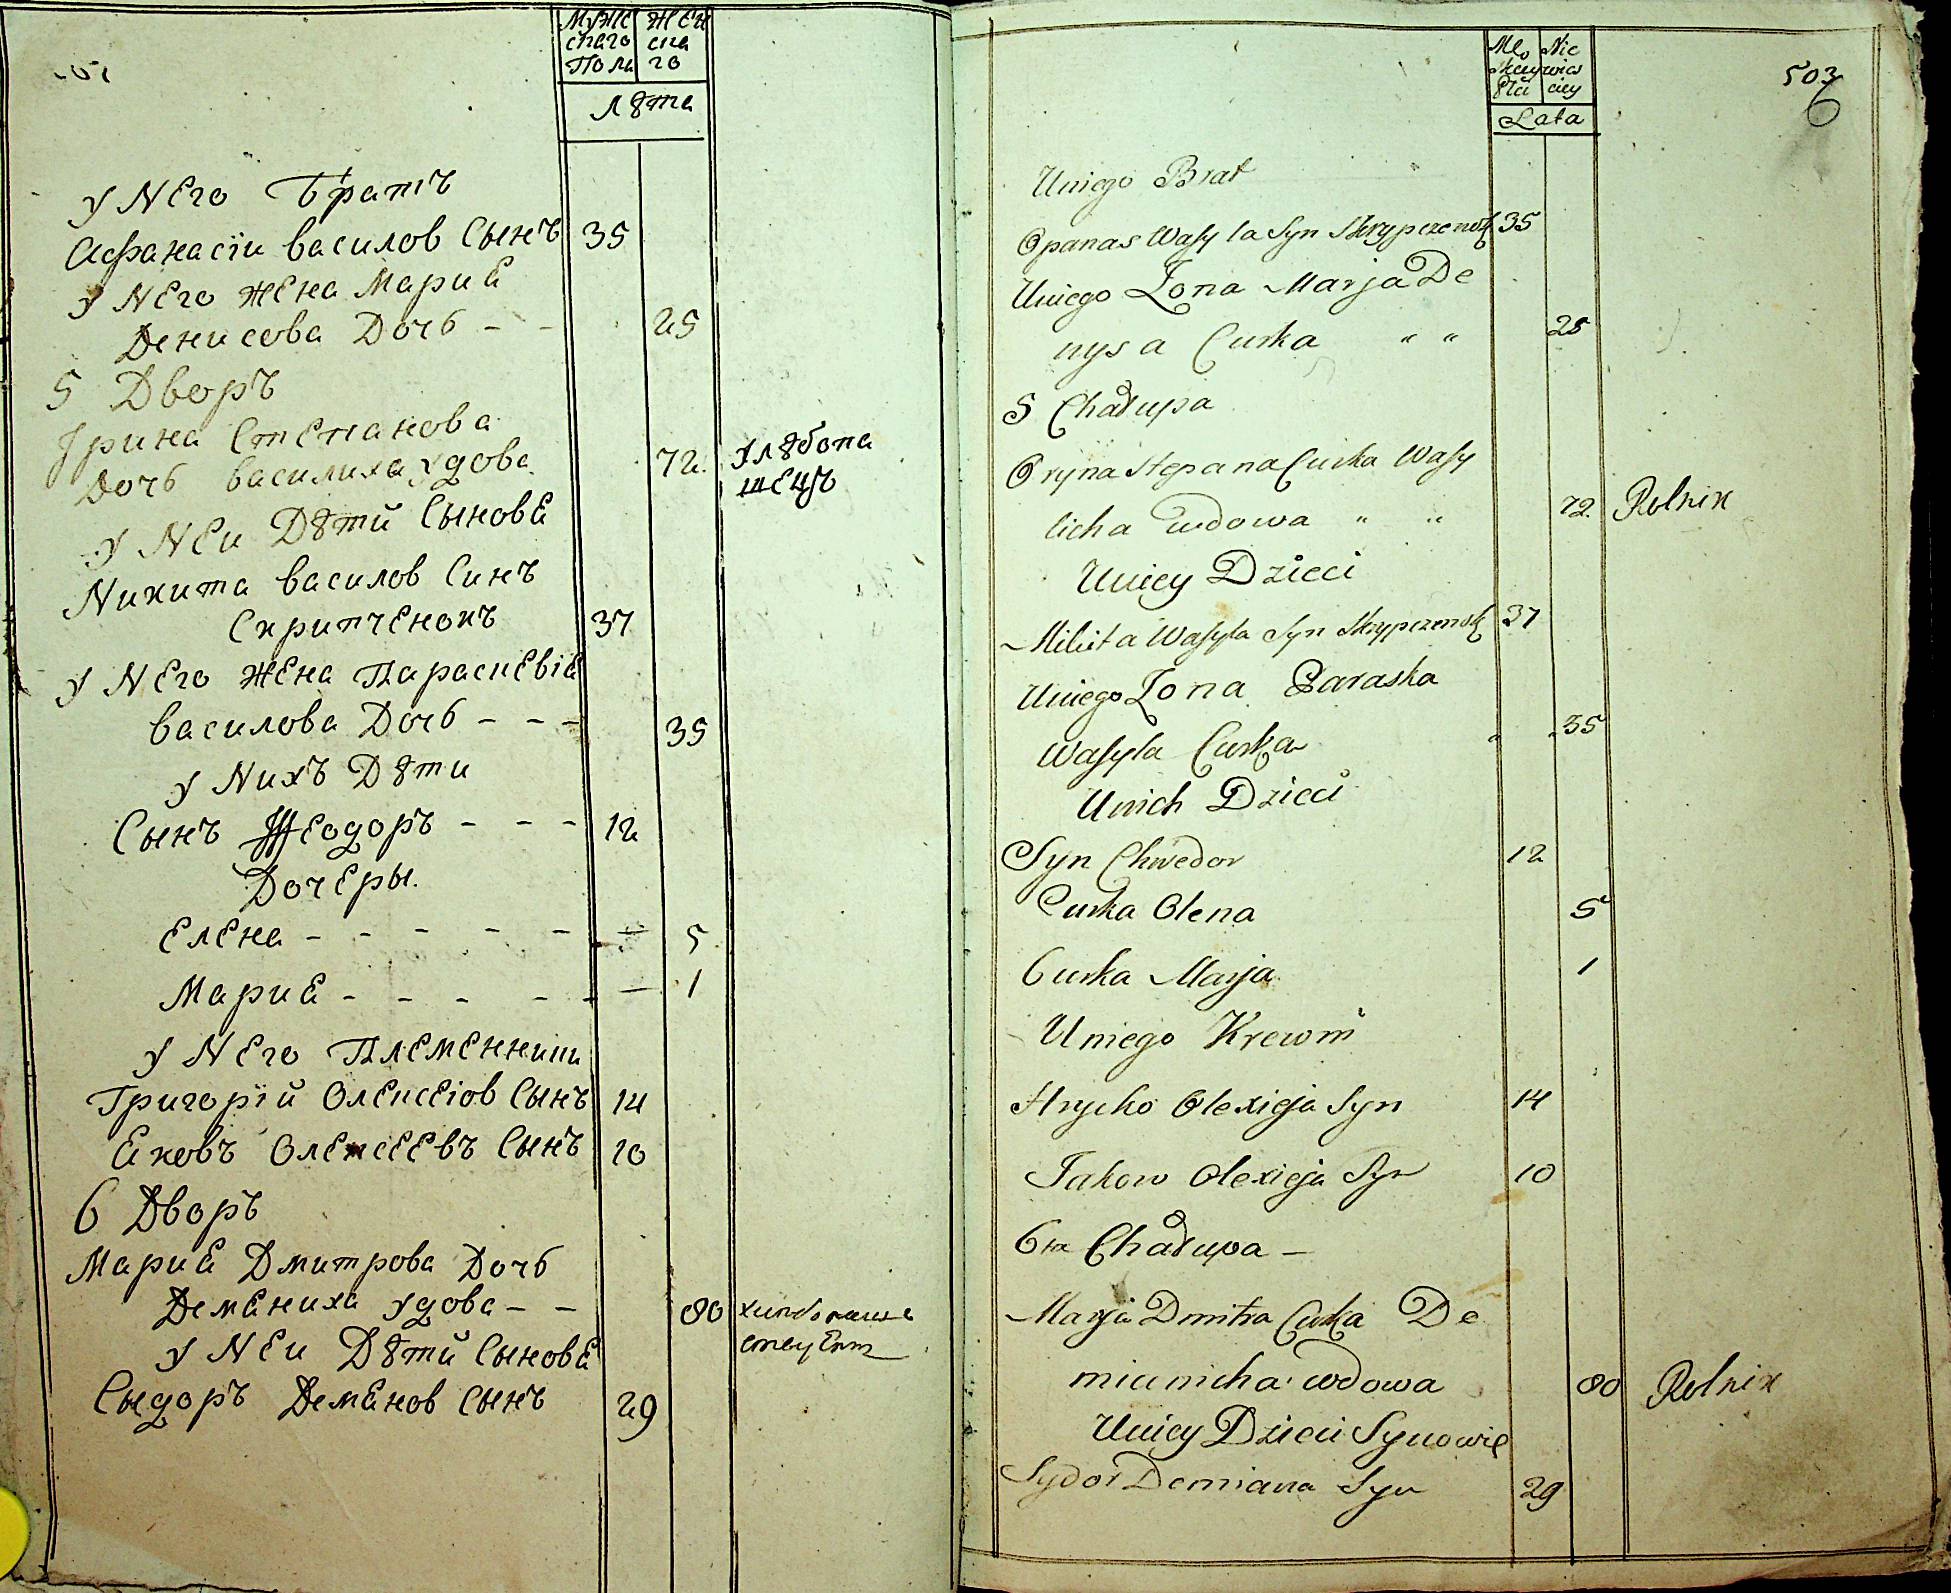 Муже Жен
скаго ска
Пола го
лѣта
у Него Братъ
Афанасіи василов Сынъ 35
у Него жена Мариѣ
Денисова Дочь - - 25
5 Дворъ
Ірина Степанова
Дочь василиха удова 72
у Неи Дѣти Сыновѣ
Никита василов Синъ
Скрипченокъ 37
у Него жена Параскевіѣ
василова Дочь - - - 35
у Нихъ Дѣти
Сынъ Ѳеодоръ - - - 12
Дочеры.
Елена - - - - - - 5
Мариѣ - - - - - - 1
у Него Племенники
Григорїй Олексеіов Сынъ 14
Ековъ Олексеевъ Сынъ 10
6 Дворъ
Мариѣ Дмитрова Дочь
Демѣниха удова - - 80
у Неи Дѣти Сыновѣ
Сыдоръ Демѣнов Сынъ 29
503
6
Męskiey Niewiesciey
Płci
Lata
Uniego Brat
Opanas Wasyla Syn Skrypczenok 35
Uniego Żona Marja De
nysa Curka " " 25
5 Chałupa
Oryna Stepana Curka Wasy
licha wdowa " " 72 Rolnik
Uniey Dzieci
Mikita Wasyla Syn Skrypczenok 37
Uniego Żona Paraska
Wasyla Curka " " 35
Unich Dzieci
Syn Chwedor 12
Curka Olena 5
Curka Marja 1
Uniego Krewni
Hrycko Olexieja Syn 14
Jakow Olexieja Syn 10
6ta Chałupa -
Marja Dmitra Curka De
mianicha wdowa 80 Rolnik
Uniey Dzieci Synowie
Sydor Demiana Syn 29